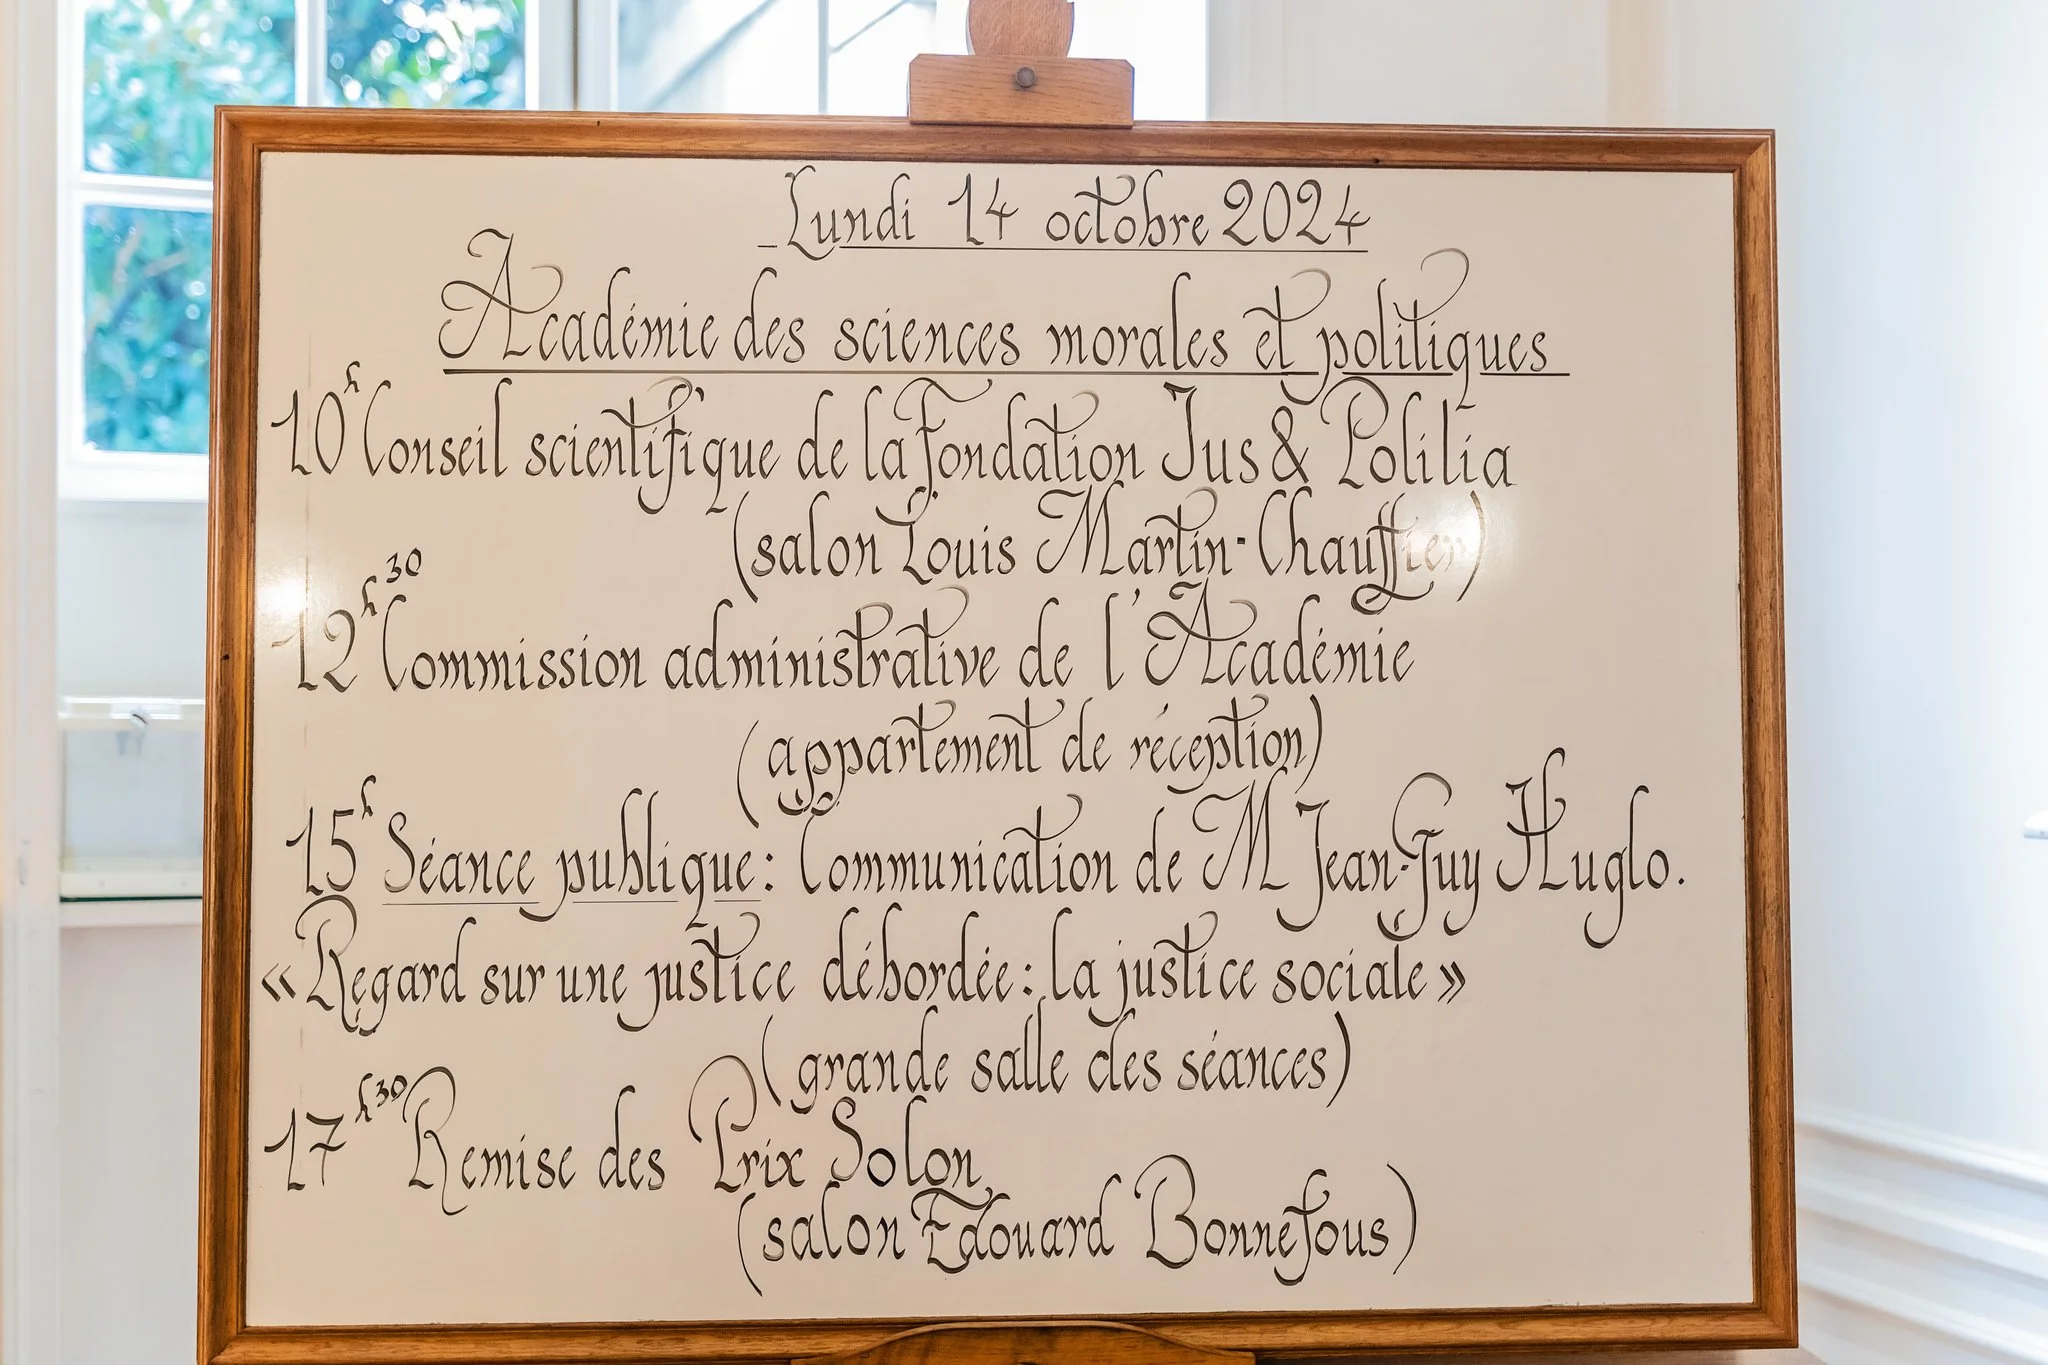 Lundi 14 octobre 2024
Académie des sciences morales et politiques
10h Conseil scientifique de la Fondation Jus & Polilia
(salon Louis Martin-Chauffier)
12h30 Commission administrative de l'Académie
(appartement de réception)
15h Séance publique : Communication de M Jean-Guy Huglo.
« Regard sur une justice débordée : la justice sociale »
(grande salle des séances)
17h30 Remise des Prix Solon
(salon Edouard Bonnefous)